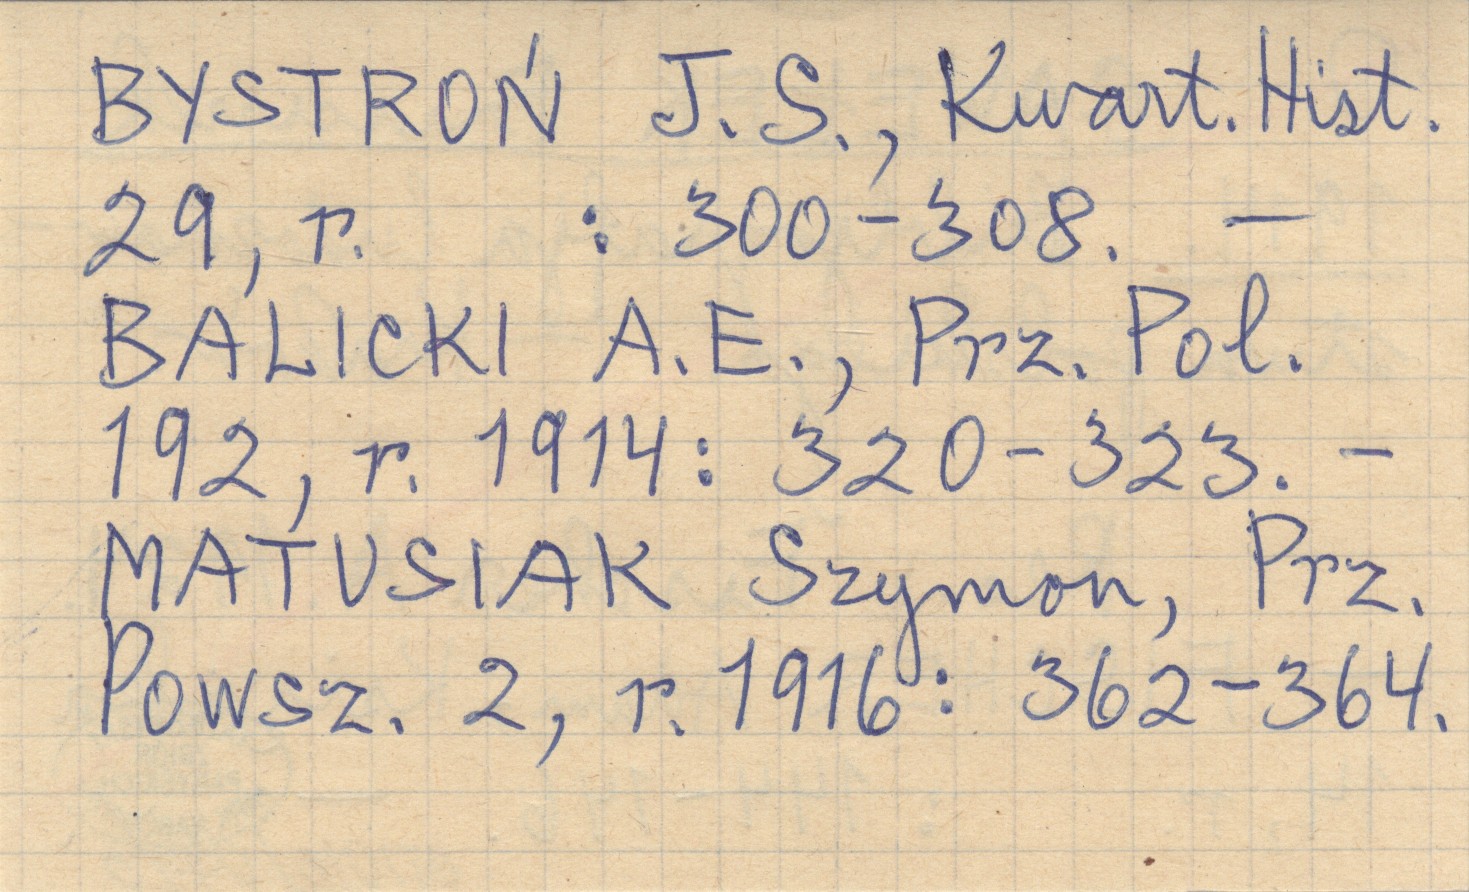 BYSTROŃ J.S., Kwart. Hist.
29, r. : 300-308. —
BALICKI A.E., Prz. Pol.
192, r. 1914: 320-323. -
MATUSIAK Szymon, Prz.
Powsz. 2, r. 1916: 362-364.